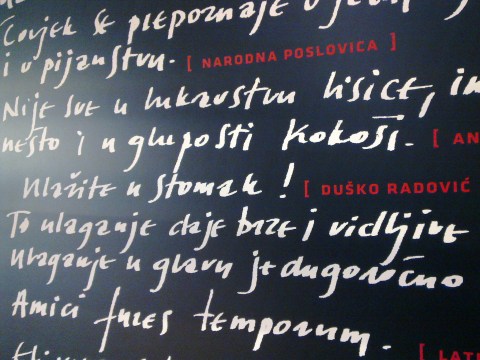 Čovjek se prepoznaje u
i u pijanstvu. [ NARODNA POSLOVICA ]
Nije sve u lukavstvu lisice, im
nešto i u gluposti kokoši. [ AN
Ulažite u stomak! [ DUŠKO RADOVIĆ
To ulaganje daje brze i vidljive
Ulaganje u glavu je dugoročno
Amici fures temporum. [ LATI